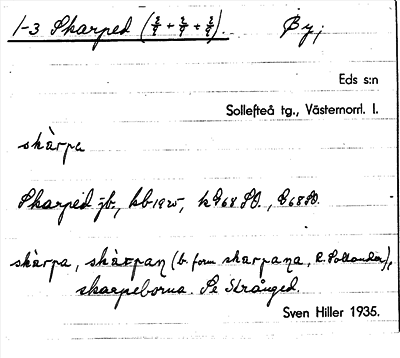 1-3 Skarped (2/4 + 2/4 + 2/4). By;
Eds s:n
Sollefteå tg., Västernorrl. l.
skàrpa
Skarped jb., kb 1925, k G68 SO., G68 SO.
skàrpa, skàrpaη (b. form skarpaηa, R. Sollander),
skarpeborna. Se Strånged.
Sven Hiller 1935.